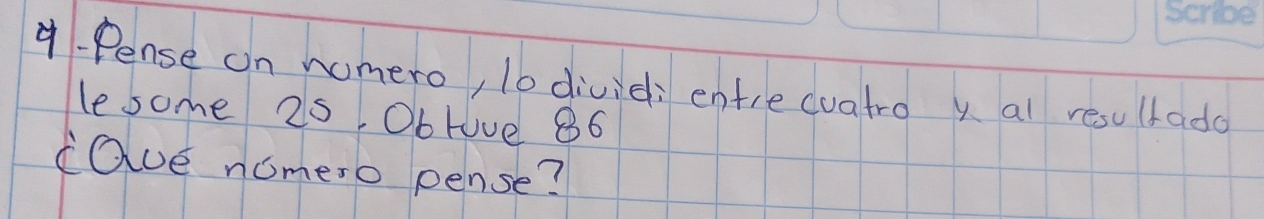 Scribe
4.-Pense un numero, lo dividi entre cuatro y al resultado
le sume 25. Obtuve 86
¿Qué número pense?